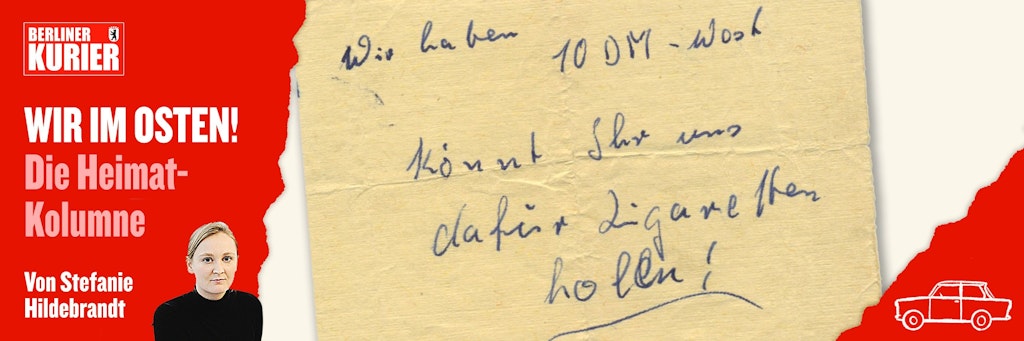 BERLINER
KURIER
WIR IM OSTEN!
Die Heimat-
Kolumne
Von Stefanie
Hildebrandt
Wir haben 10 DM - West
Könnt Ihr uns
dafür Zigaretten
holen!